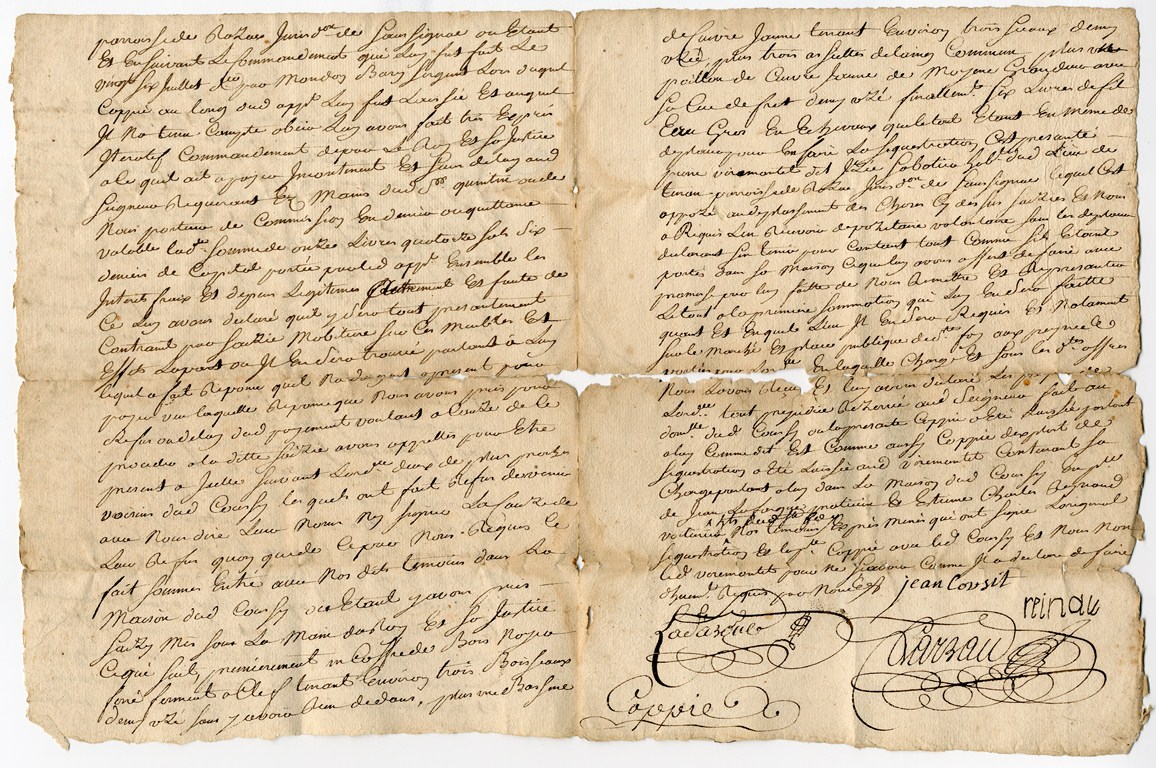 parroisse de Razac Jurisd.on de Saussignac ou Etant
Et En suivant Le Commandement qui Luy fut fait Le
vingt six Juillet d.er par Mondon Bary sergent Lors duquel
Coppie au long dud app.t Luy fut Laissée Et auquel
Il Na tenu Compte obeir Luy avons fait tres Exprés
Iteratif Commandement de par Le Roy Et sa Justice
a ce quil ait a payer Incontinent Et sans delay aud
seigneur Requerant En Mains dud S.r quintin ou de
Nous porteur de Commission En denier ou quittance
valable lad.e somme de onze Livres quatorze sols six
deniers de Capital portée par led app.t Ensemble les
Interets fraix Et depens Legitimes Autrement Et faute de
Ce Luy avons declaré quil y sera tout presentement
Contraint par saizie Mobiliere sur Ces Meubles Et
Effets La part ou Il En sera trouvé parlant a Luy
Lequel a fait Reponce quil Na d'argent a present pour
payer veu laquelle Reponce que Nous avons pris pour
Refus ou delay dud payement voulant a Cause de Ce
proceder a la ditte saizie avons appellés pour Etre
present a Icelle suivant Lord.ce deux de plus proches
voisins dud Coussy lesquels ont fait Refus de venir
avec Nous dire Leur Noms Ny signer La Cause de
Leur Refus quoy que de Ce par Nous Requis Ce
fait sommes Entré avec Nos dits temoins dans La
Maison dud Coussy ou Etant y avons pris
saizy Mis sous La Main du Roy Et sa Justice
Ce qui suit, premierement un Coffre de Bois Noyer
fermant a Clef tenant Environ trois Boisseaux
demy uzé sans y avoir rien dedans, plus une Bassine
de Cuivre Jaune tenant Environ trois seaux demy
uzé, plus trois assiettes detaing Commun, plus un
poillon de Cuivre Jaune de Moyene Grandeur avec
sa Cue de fer demy uzé finallem.t six Livres de fil
Gros En Echevaux quel tout Etant En Meme de
deplacer pour En faire La sequestration C'est presenté
pierre viremontet dit hab.t dud Lieu de
parroisse de Razac Jurisd.on de Saussignac Lequel C'est
oppozé au deplassement des Choses Cy dessus saizies Et Nous
a Requis L'en Recevoir depozitaire volontaire sans les deplacer
declarant s'en tenir pour Content tout Comme sils Etoient
portés dans sa Maison Ce que luy avons offert de faire avec
promesse par luy faitte de Nous Remettre Et Representer
Le tout a la premiere sommation qui Luy En sera faitte
quant Et En quel Lieu Il En sera Requis Et Notament
sur le Marché Et place publique de foy aux peynes de
En laquelle Charge Et sous les d.tes offres
Nous Lavons Et luy avons declaré
tout prejudice Rezervé aud Seigneur fait au
dom.lle dud Coussy ou la presente Coppie a Eté Laissée parlant
a luy Comme dit Est Comme aussy Coppie d'exploit de
sequestration a Eté Laissée aud viremontet Contenant sa
Charge parlant a luy dans La Maison dud Coussy En p.ce
de Jean Lafargue praticien Et Estienne Charles Reynaud
voiturier Nos temoins Exprés menés qui ont signé Loriginal
sequestration Et Coppie avec led Coussy Et Nous Non
led viremontet pour Ne sçavoir Comme Il a declaré de faire
Requis par Nous
jean Cousit
reinau
Lafargue
Larzau
Coppie